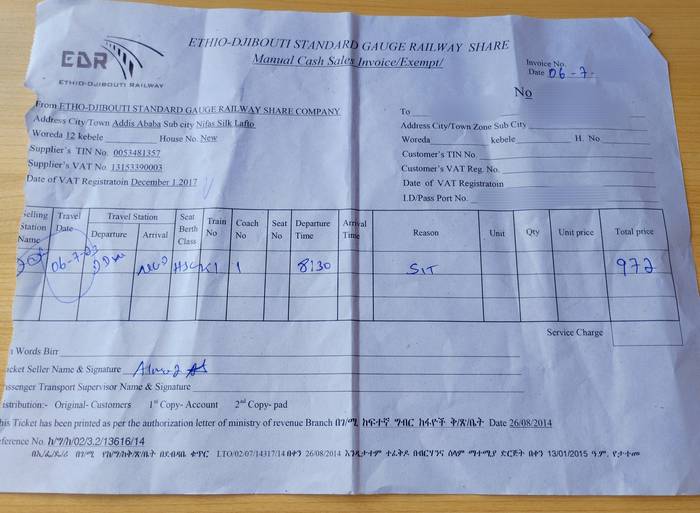 EDR
ETHIO-DJIBOUTI RAILWAY
ETHIO-DJIBOUTI STANDARD GAUGE RAILWAY SHARE
Manual Cash Sales Invoice/Exempt/
Invoice No.
Date 06-7-
No
From ETHO-DJIBOUTI STANDARD GAUGE RAILWAY SHARE COMPANY
Address City/Town Addis Ababa Sub city Nifas Silk Lafto
Woreda 12 kebele House No. New
Supplier's TIN No. 0053481357
Supplier's VAT No 13153390003
Date of VAT Registratoin December 1.2017
To
Address City/Town Zone Sub City
Woreda kebele H. No
Customer's TIN No.
Customer's VAT Reg. No.
Date of VAT Registratoin
I.D/Pass Port No.
Selling Station Name Travel Date Travel Station Departure Arrival Seat Berth Class Train No Coach No Seat No Departure Time Arrival Time Reason Unit Qty Unit price Total price
06-7-23 DDW HSC K1 1 8:30 SIT 972
Service Charge
Words Birr
Ticket Seller Name & Signature
Passenger Transport Supervisor Name & Signature
Distribution:- Original- Customers 1st Copy- Account 2nd Copy- pad
This Ticket has been printed as per the authorization letter of ministry of revenue Branch በገ/ሚ ከፍተኛ ግብር ከፋዮች ቅ/ጽ/ቤት Date 26/08/2014
Reference No. ከ/ግ/ከ/02/3.2/13616/14
LTO/02/07/14317/14 በቀን 26/08/2014 እንዲታተም ተፈቅዶ በብርሃንና ሰላም ማተሚያ ድርጅት በቀን 13/01/2015 ዓ.ም. የታተመ